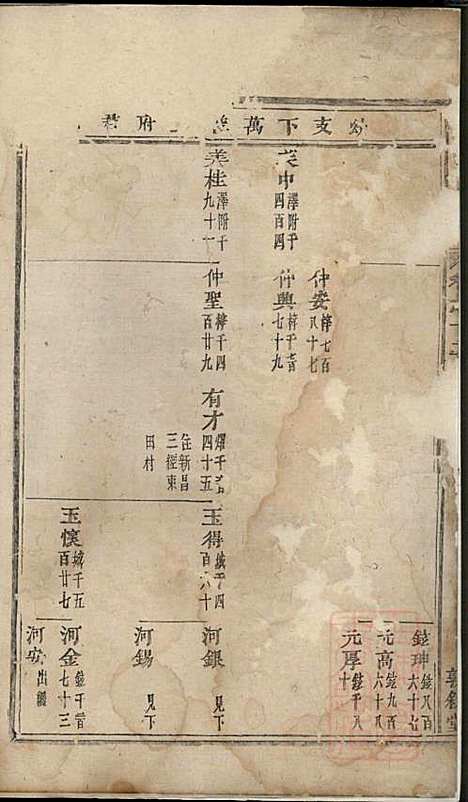 支下萬
府君
仲安 梓七百八十七
中 澤附千四百四
仲興 梓千一百七十九
美桂 澤附千九十一
仲聖 梓千四百廿九
有才 燿千一百四十五
住新昌三經東田村
玉得 鉞千四百六十
玉懷 鉞千五百廿七
鎡珅 鎡八百六十七
元高 鎡九百六十八
元厚 鎡千八十
河銀 見下
河錫 見下
河金 鎡千一百七十三
河安 出繼
敦敘堂